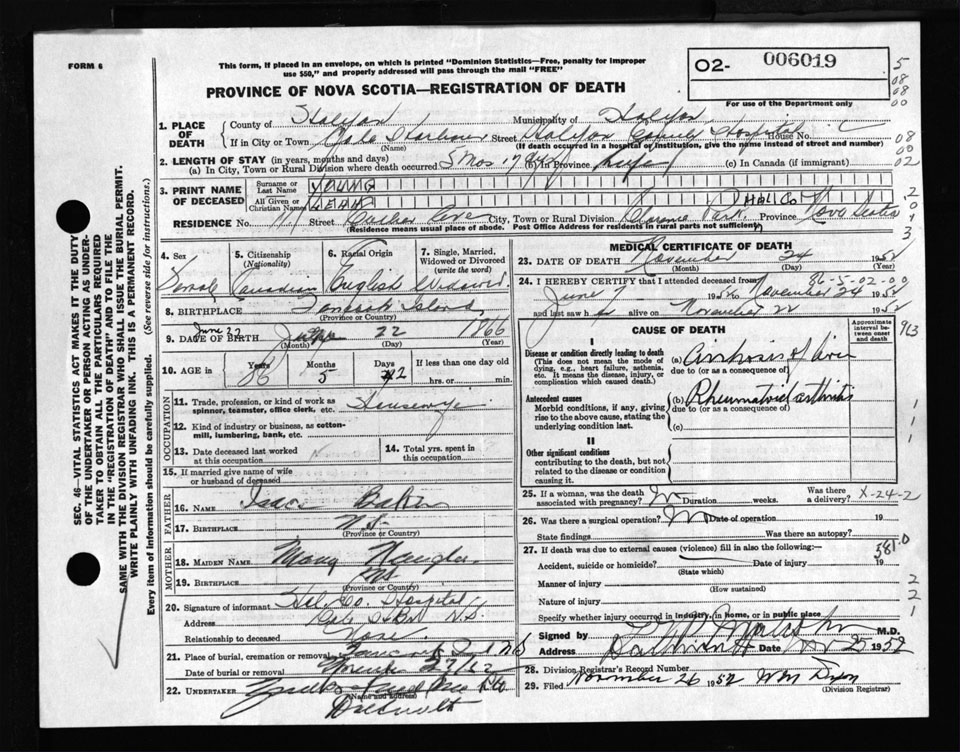 FORM 6
This form, if placed in an envelope, on which is printed "Dominion Statistics—Free, penalty for improper
use $50," and properly addressed will pass through the mail "FREE"
O2- 006019
PROVINCE OF NOVA SCOTIA—REGISTRATION OF DEATH
For use of the Department only
5
08
08
00
1. PLACE OF DEATH
County of Halifax Municipality of Halifax
If in City or Town Cole Harbour Street Halifax County Hospital House No.
(Name) (If death occurred in a hospital or institution, give the name instead of street and number)
08
00
02
2. LENGTH OF STAY (in years, months and days)
(a) In City, Town or Rural Division where death occurred 5 Mos. 17 dys (b) In Province Life (c) In Canada (if immigrant)
3. PRINT NAME OF DECEASED
Surname or Last Name YOUNG
All Given or Christian Names LEAH
HAL. Co
RESIDENCE No. 11 Street Ave City, Town or Rural Division Clarence Park Province Nova Scotia
(Residence means usual place of abode. Post Office Address for residents in rural parts not sufficient)
2
0
1
3
4. Sex 5. Citizenship (Nationality) 6. Racial Origin 7. Single, Married, Widowed or Divorced (Write the word)
Female Canadian English Widowed
8. BIRTHPLACE Island
(Province or Country)
June 22
9. DATE OF BIRTH 22 1866
(Month) (Day) (Year)
10. AGE in Years Months Days If less than one day old
86 5 2 hrs. or min.
OCCUPATION
11. Trade, profession, or kind of work as spinner, teamster, office clerk, etc. Housewife
12. Kind of industry or business, as cotton-mill, lumbering, bank, etc.
13. Date deceased last worked at this occupation
14. Total yrs. spent in this occupation
15. If married give name of wife or husband of deceased
FATHER
16. NAME Isaac Baker
17. BIRTHPLACE N.S.
(Province or Country)
MOTHER
18. MAIDEN NAME Mary
19. BIRTHPLACE N.S.
(Province or Country)
20. Signature of informant Hal. Co. Hospital
Address Cole Hbr. N.S.
Relationship to deceased None.
21. Place of burial, cremation or removal N.S
Date of burial or removal 27/52
22. UNDERTAKER
(Name and address)
Dartmouth
MEDICAL CERTIFICATE OF DEATH
23. DATE OF DEATH November 24 1952
(Month) (Day) (Year)
86-5-02-00
24. I HEREBY CERTIFY that I attended deceased from
June 7 1952 to November 24 1952
and last saw h alive on November 22 1952
CAUSE OF DEATH
Approximate interval between onset and death
913
I
Disease or condition directly leading to death
(This does not mean the mode of dying, e.g., heart failure, asthenia, etc. It means the disease, injury, or complication which caused death.)
(a) Cirrhosis of liver
due to (or as a consequence of)
Antecedent causes
Morbid conditions, if any, giving rise to the above cause, stating the underlying condition last.
(b) Rheumatoid arthritis
due to (or as a consequence of)
(c)
1
1
1
II
Other significant conditions
contributing to the death, but not related to the disease or condition causing it.
25. If a woman, was the death associated with pregnancy? No Duration weeks. Was there a delivery?
X-24-2
26. Was there a surgical operation? No Date of operation 19
State findings Was there an autopsy?
27. If death was due to external causes (violence) fill in also the following:—
581.0
Accident, suicide or homicide? Date of injury 19
(State which)
Manner of injury
(How sustained)
Nature of injury
2
2
1
Specify whether injury occurred in industry, in home, or in public place
Signed by M.D.
Address Dartmouth Date Nov 25 1952
28. Division Registrar's Record Number
29. Filed November 26 1952 Wm Dixon
(Division Registrar)
SEC. 46—VITAL STATISTICS ACT MAKES IT THE DUTY
OF THE UNDERTAKER OR PERSON ACTING AS UNDER-
TAKER TO OBTAIN ALL THE PARTICULARS REQUIRED
IN THE "REGISTRATION OF DEATH" AND TO FILE THE
SAME WITH THE DIVISION REGISTRAR WHO SHALL ISSUE THE BURIAL PERMIT.
WRITE PLAINLY WITH UNFADING INK. THIS IS A PERMANENT RECORD.
Every item of information should be carefully supplied. (See reverse side for instructions.)